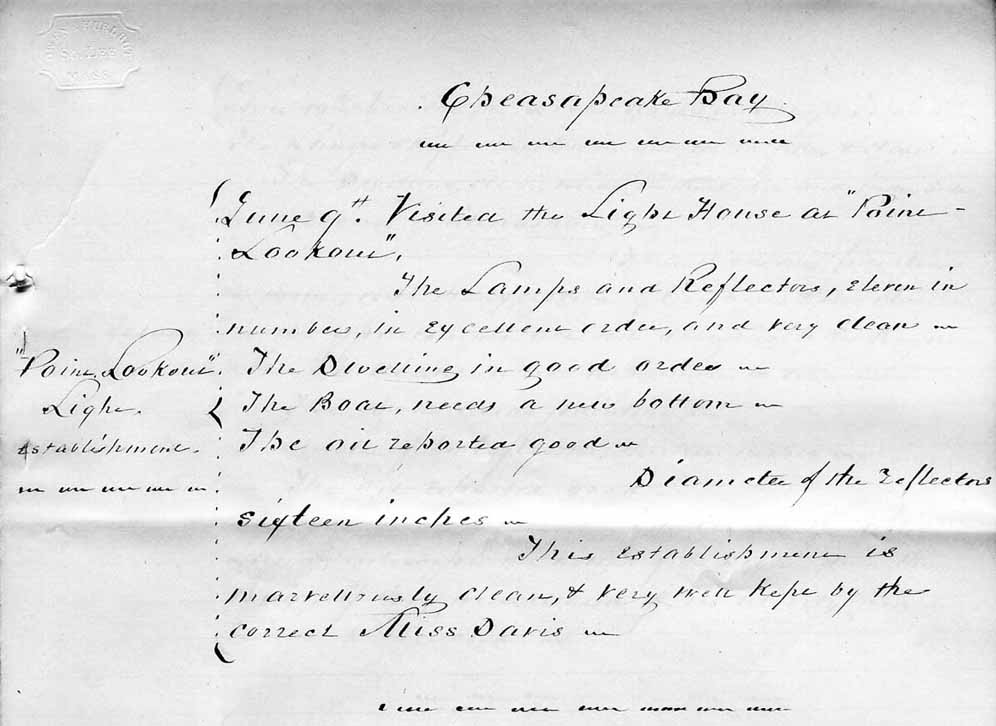 Cheasapeake Bay
June 9th. Visited the Light House at "Point-
Lookout".
The Lamps and Reflectors, eleven in
number, in excellent order, and very clean
"Point Lookout"
Light.
Establishment.
The Dwelling in good order
The Boat, needs a new bottom
The oil reported good
Diameter of the reflectors
sixteen inches
This establishment is
marvellously clean, & very well kept by the
correct Miss Davis
LEE
MASS